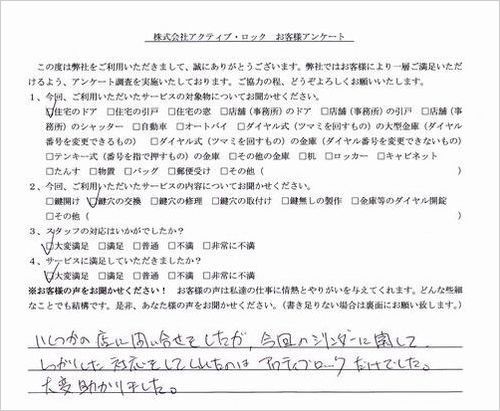 株式会社アクティブ・ロック　お客様アンケート
この度は弊社をご利用いただきまして、誠にありがとうございます。弊社ではお客様により一層ご満足いただ
けるよう、アンケート調査を実施いたしております。ご協力の程、どうぞよろしくお願いいたします。
1、今回、ご利用いただいたサービスの対象物についてお聞かせください。
☑住宅のドア　□住宅の引戸　□住宅の窓　□店舗（事務所）のドア　□店舗（事務所）の引戸　□店舗（事務
所）のシャッター　□自動車　□オートバイ　□ダイヤル式（ツマミを回すもの）の大型金庫（ダイヤル
番号を変更できるもの）　□ダイヤル式（ツマミを回すもの）の金庫（ダイヤル番号を変更できないもの）
□テンキー式（番号を指で押すもの）の金庫　□その他の金庫　□机　□ロッカー　□キャビネット
□たんす　□物置　□バッグ　□郵便受け　□その他（　　　　　　　　　　）
2、今回、ご利用いただいたサービスの内容についてお聞かせください。
□鍵開け　☑鍵穴の交換　□鍵穴の修理　□鍵穴の取付け　□鍵無しの製作　□金庫等のダイヤル開錠
□その他（　　　　　　　　　　）
3、スタッフの対応はいかがでしたか？
☑大変満足　□満足　□普通　□不満　□非常に不満
4、サービスに満足していただきましたか？
☑大変満足　□満足　□普通　□不満　□非常に不満
※お客様の声をお聞かせください！　お客様の声は私達の仕事に情熱とやりがいを与えてくれます。どんな些細
なことでも結構です。是非、あなた様の声をお聞かせください。（書き足りない場合は裏面にお願い致します。）
いくつかの店に問い合せをしたが、今回のシリンダーに関して、
しっかりした対応をしてくれたのはアクティブロックだけでした。
大変助かりました。